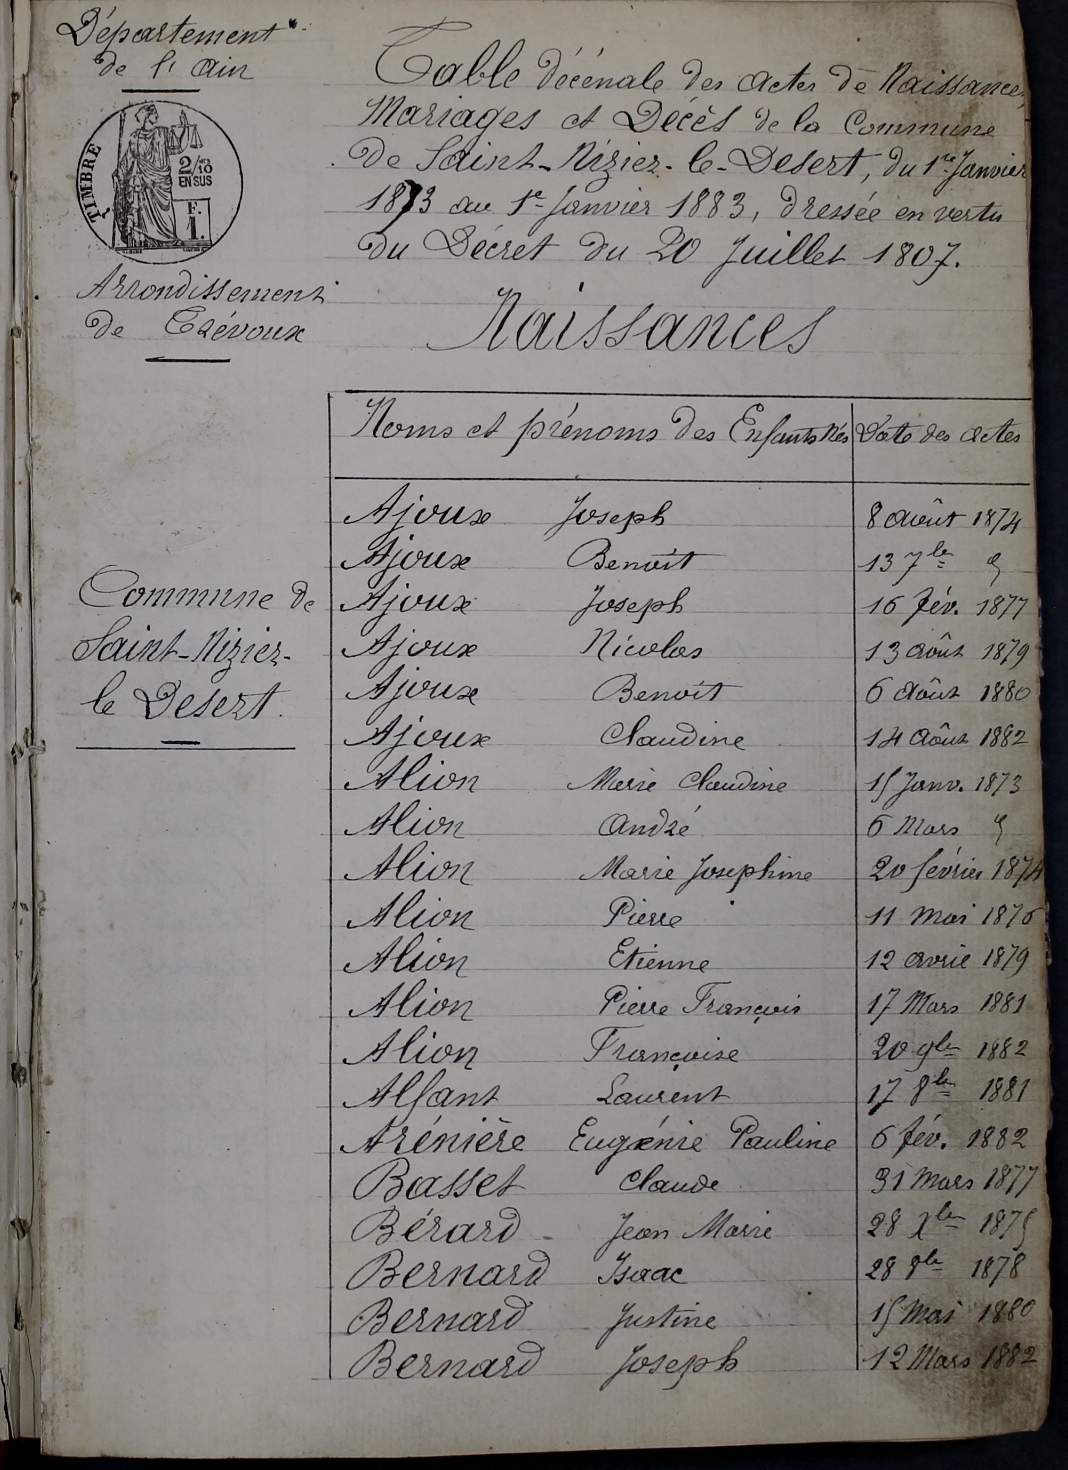 Département
de l'Ain
TIMBRE
2/10
EN SUS
F.
1.
Arrondissement
de Trévoux
Commune de
Saint-Nizier-
le Desert.
Table décénale des actes de Naissances,
Mariages et Décès de la Commune
de Saint-Nizier-le-Desert, du 1er Janvier
1873 au 1er Janvier 1883, dressée en vertu
du Décret du 20 Juillet 1807.
Naissances
Noms et prénoms des Enfants Nés Date des actes
Ajoux Joseph 8 août 1874
Ajoux Benoît 13 7bre
Ajoux Joseph 16 fév. 1877
Ajoux Nicolas 13 août 1879
Ajoux Benoît 6 août 1880
Ajoux Claudine 14 août 1882
Alion Marie Claudine 15 Janv. 1873
Alion André 6 Mars
Alion Marie Josephine 20 février 1874
Alion Pierre 11 mai 1876
Alion Etienne 12 avril 1879
Alion Pierre François 17 Mars 1881
Alion Françoise 20 9bre 1882
Alfant Laurent 17 8bre 1881
Arénière Eugénie Pauline 6 fév. 1882
Basset Claude 31 Mars 1877
Bérard Jean Marie 28 Xbre 1875
Bernard Isaac 28 8bre 1878
Bernard Justine 15 Mai 1880
Bernard Joseph 12 Mars 1882